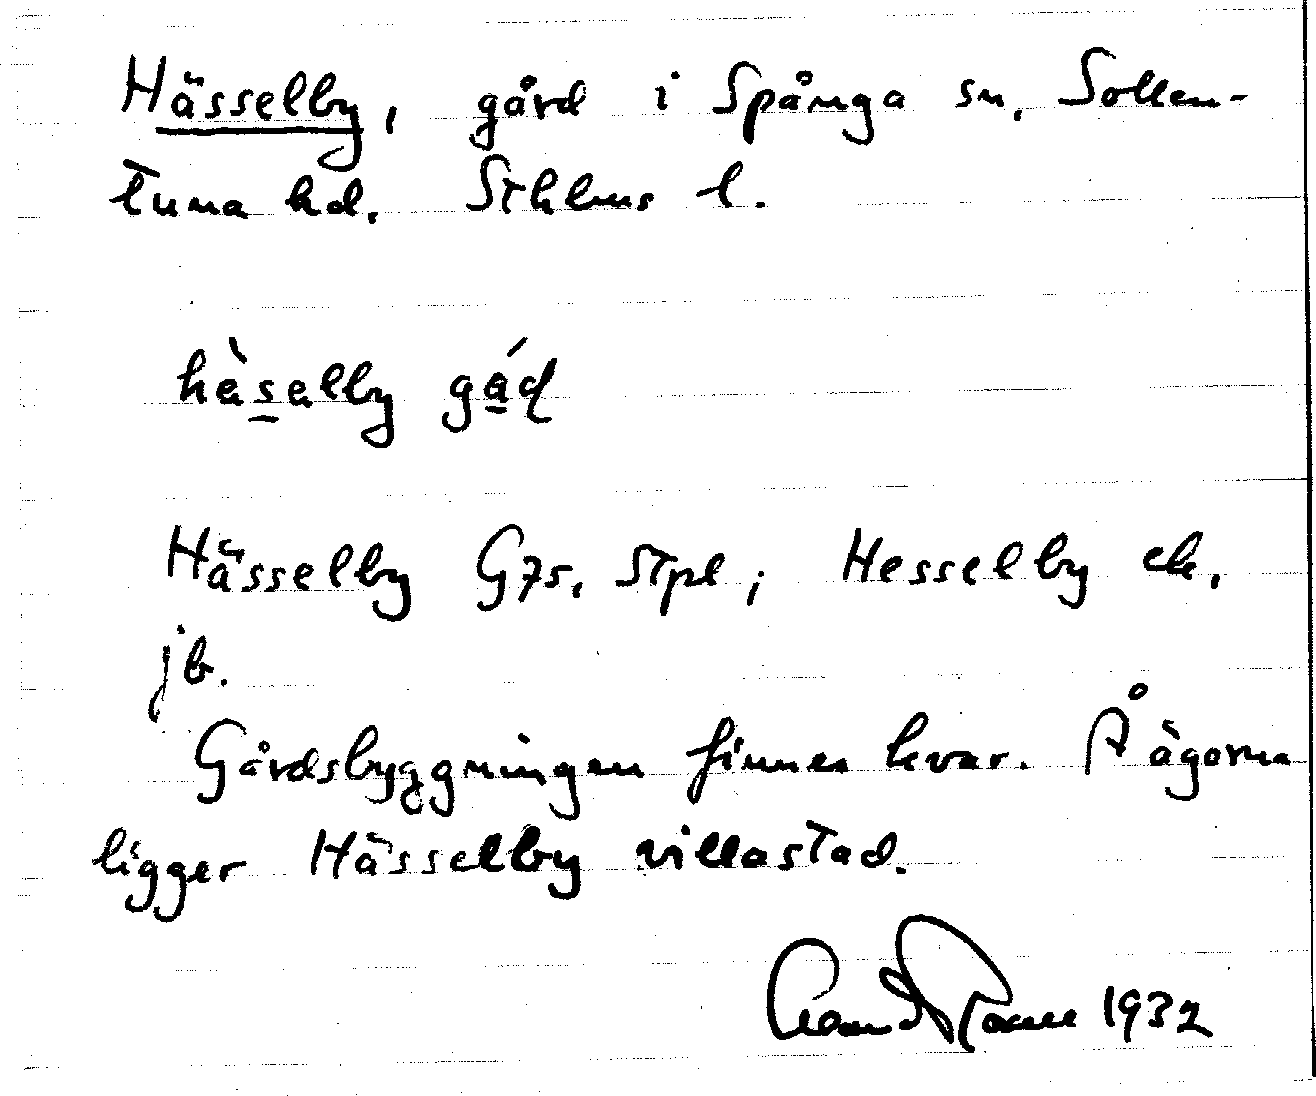 Hässelby, gård i Spånga sn, Sollen-
tuna hd, Sthlms l.
hèselby gád
Hässelby G7s, stpl, Hesselby ek,
jb.
Gårdsbyggningen finnes kvar. På ägorna
ligger Hässelby villastad.
1932